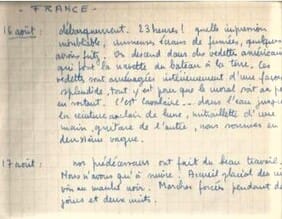 - FRANCE -
16 août : débarquement. 23 heures ! quelle impression
inoubliable, immenses écrans de fumées, quelques
avions fritz. On descend dans des vedettes américaines
qui font la navette du bateau à la terre. Ces
vedettes sont aménagées intérieurement d'une façon
splendide, tout y est pour que le moral soit au poil
en sortant. C'est cavalaire... dans l'eau jusqu'à
la ceinture au clair de lune, mitraillette d'une
main, guitare de l'autre, nous sommes en
deuxième vague.
17 août : nos prédécesseurs ont fait du beau travail.
Nous n'avons qu'à suivre. Accueil glacial des
vin au marché noir. Marches forcées pendant
jours et deux nuits.